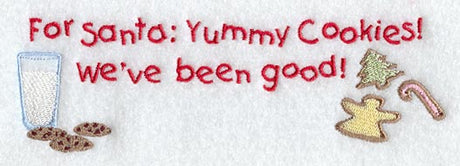 For Santa: Yummy Cookies!
We've been good!